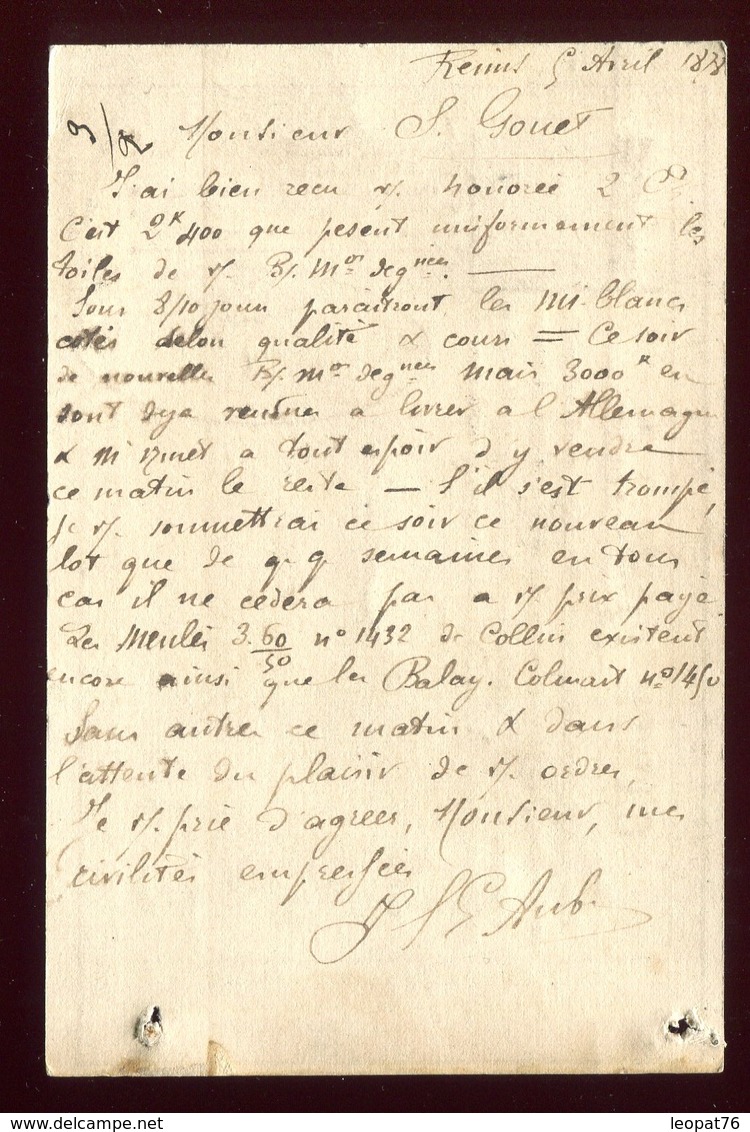 Reims 5 Avril 1878
Monsieur S. Gouet
J'ai bien recu v/. honorée 2 Ct
C'est 2k400 que pesent uniformement les
toiles de v/. B/. Mon Segnées.
Sous 8/10 jours paraitront les Mi-blancs
cotés selon qualité & cours = Ce soir
de nouvelles B/. Mon Segnées Mais 3000k en
sont deja vendues a livrer a l'Allemagne
& Mr a tout espoir d'y vendre
ce matin le reste — S'il s'est trompé,
je v/. soumettrai ce soir ce nouveau
lot que de q.q. semaines en tous
cas il ne cedera pas a v/. prix payé
Les Meulés 3.60/50 no 1432 de Collin existent
encore ainsi que les Balay. Colmart no 1450
Sans autres ce matin & dans
l'attente du plaisir de v/. ordres,
Je v/. prie d'agreer, Monsieur, mes
civilités empressées
leopat76